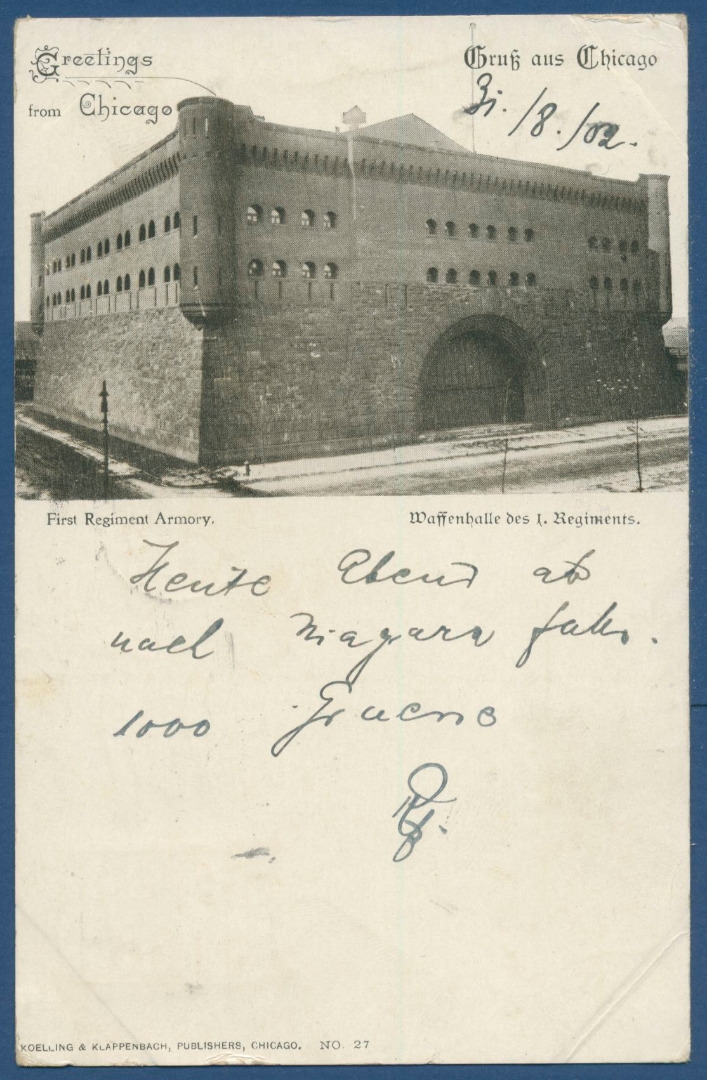 Greetings
from Chicago
Gruß aus Chicago
31./8./02.
First Regiment Armory.
Waffenhalle des 1. Regiments.
Heute Abend ab
nach Niagara falls.
1000 Gruesse
KOELLING & KLAPPENBACH, PUBLISHERS, CHICAGO. NO. 27